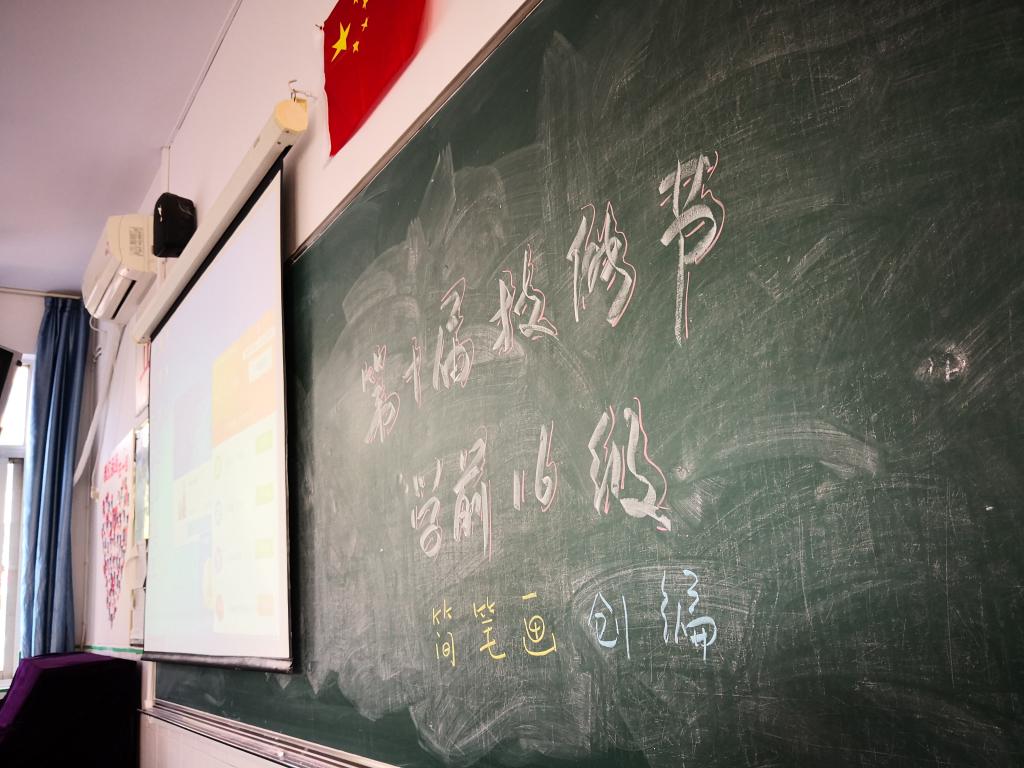 第十届技做节
学前16级
简笔画 创编